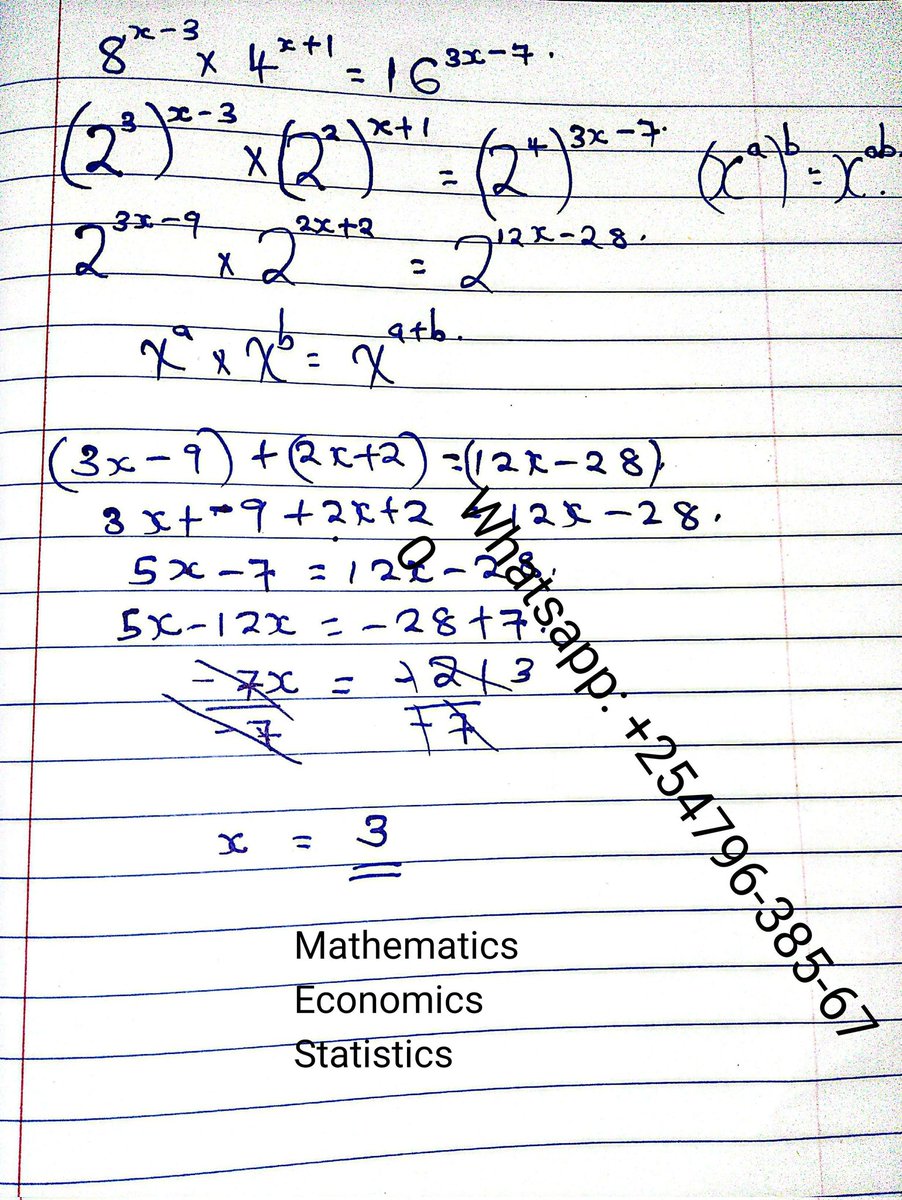 8^{x-3} × 4^{x+1} = 16^{3x-7}.
(2^3)^{x-3} × (2^2)^{x+1} = (2^4)^{3x-7}. (x^a)^b = x^{ab}.
2^{3x-9} × 2^{2x+2} = 2^{12x-28}.
x^a × x^b = x^{a+b}.
(3x-9) + (2x+2) = (12x-28).
3x+-9+2x+2 = 12x-28.
5x-7 = 12x-28.
5x-12x = -28+7.
-7x = -21 3
-7 -7
x = 3
Mathematics
Economics
Statistics
Whatsapp: +254796-385-67
0